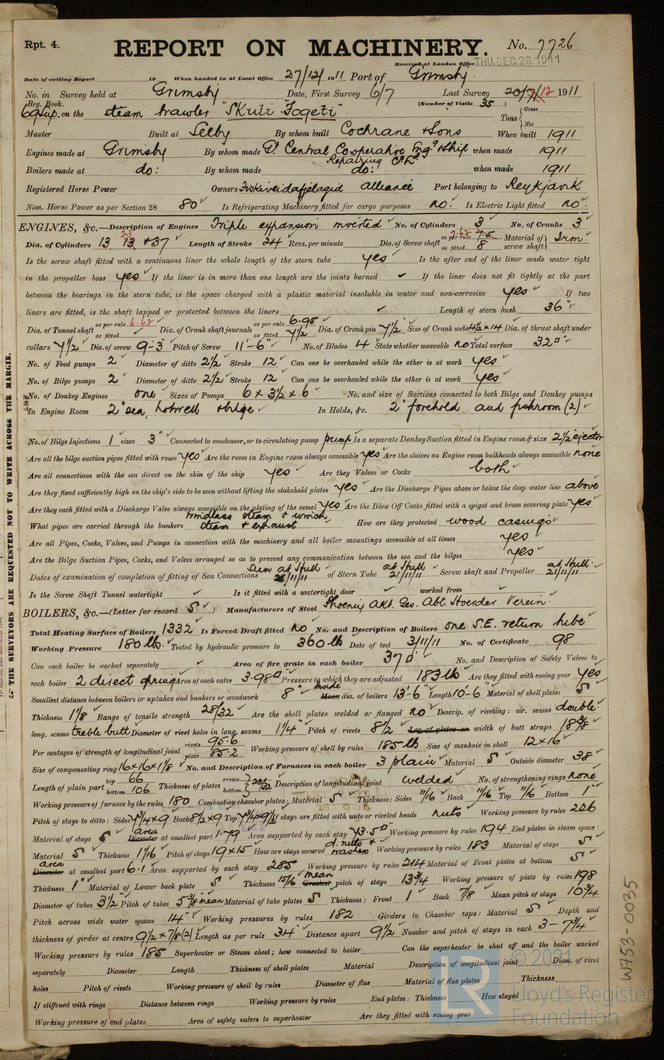 Rpt. 4. REPORT ON MACHINERY. No. 7726
Received at London Office THU. DEC. 28. 1911
Date of writing Report 19 When handed in at Local Office 27/12/1911 Port of Grimsby
No. in Survey held at Grimsby Date, First Survey 6/7 Last Survey 20/12 1911
Reg. Book. (Number of Visits 35)
69 Sup. on the steam trawler "Skuli Fogeti" Tons Gross Net
Master Built at Selby By whom built Cochrane & Sons When built 1911
Engines made at Grimsby By whom made Gt. Central Cooperative Eng. & Ship when made 1911
Repairing Co. Ld.
Boilers made at do: By whom made do: when made 1911
Registered Horse Power Owners Fiskiveidafjelagid Alliance Port belonging to Reykjavik
Nom. Horse Power as per Section 28 80 Is Refrigerating Machinery fitted for cargo purposes no. Is Electric Light fitted no.
ENGINES, &c.—Description of Engines Triple expansion inverted No. of Cylinders 3 No. of Cranks 3
Dia. of Cylinders 13 23 & 37 Length of Stroke 24 Revs. per minute Dia. of Screw shaft as per rule 7.62 as fitted 8 Material of screw shaft Iron
Is the screw shaft fitted with a continuous liner the whole length of the stern tube yes Is the after end of the liner made water tight
in the propeller boss yes If the liner is in more than one length are the joints burned If the liner does not fit tightly at the part
between the bearings in the stern tube, is the space charged with a plastic material insoluble in water and non-corrosive yes If two
liners are fitted, is the shaft lapped or protected between the liners Length of stern bush 36"
Dia. of Tunnel shaft as per rule 6.62 as fitted Dia. of Crank shaft journals as per rule 6.95 as fitted 7½ Dia. of Crank pin 7½ Size of Crank webs 4½ x 14 Dia. of thrust shaft under
collars 7½ Dia. of screw 9-3 Pitch of Screw 11'-6" No. of Blades 4 State whether moveable no Total surface 32
No. of Feed pumps 2 Diameter of ditto 2½ Stroke 12 Can one be overhauled while the other is at work yes
No. of Bilge pumps 2 Diameter of ditto 2½ Stroke 12 Can one be overhauled while the other is at work yes
No. of Donkey Engines one Sizes of Pumps 6 x 3½ x 6 No. and size of Suctions connected to both Bilge and Donkey pumps
In Engine Room 2" sea, hotwell & bilge In Holds, &c. 2" forehold and fishroom (2)
No. of Bilge Injections 1 sizes 3" Connected to condenser, or to circulating pump pump Is a separate Donkey Suction fitted in Engine room & size 2½ ejector
Are all the bilge suction pipes fitted with roses yes Are the roses in Engine room always accessible yes Are the sluices on Engine room bulkheads always accessible none
Are all connections with the sea direct on the skin of the ship yes Are they Valves or Cocks both
Are they fixed sufficiently high on the ship's side to be seen without lifting the stokehold plates yes Are the Discharge Pipes above or below the deep water line above
Are they each fitted with a Discharge Valve always accessible on the plating of the vessel yes Are the Blow Off Cocks fitted with a spigot and brass covering plate yes
What pipes are carried through the bunkers windlass steam & winch steam & exhaust How are they protected wood casings
Are all Pipes, Cocks, Valves, and Pumps in connection with the machinery and all boiler mountings accessible at all times yes
Are the Bilge Suction Pipes, Cocks, and Valves arranged so as to prevent any communication between the sea and the bilges yes
Dates of examination of completion of fitting of Sea Connections 21/11/11 of Stern Tube at Hull 21/11/11 Screw shaft and Propeller at Hull 21/11/11
Is the Screw Shaft Tunnel watertight Is it fitted with a watertight door worked from
BOILERS, &c.—(Letter for record S) Manufacturers of Steel Phoenix Akt. Ges. Abt. Hoerder Verein.
Total Heating Surface of Boilers 1332 Is Forced Draft fitted no No. and Description of Boilers one S.E. return tube
Working Pressure 180 lb. Tested by hydraulic pressure to 360 lb Date of test 3/11/11 No. of Certificate 98
Can each boiler be worked separately Area of fire grate in each boiler 37 No. and Description of Safety Valves to
each boiler 2 direct spring Area of each valve 3.98 Pressure to which they are adjusted 183 lb Are they fitted with easing gear yes
Smallest distance between boilers or uptakes and bunkers or woodwork 8" inside Mean dia. of boilers 13'-6" Length 10-6 Material of shell plates S
Thickness 1⅛ Range of tensile strength 28/32 Are the shell plates welded or flanged no Descrip. of riveting: cir. seams double
long. seams treble butt Diameter of rivet holes in long. seams 1¼ Pitch of rivets 8½ Lap of plates or width of butt straps 18⅝
Per centages of strength of longitudinal joint rivets 95.6 plate 85.2 Working pressure of shell by rules 185 lb Size of manhole in shell 12 x 16
Size of compensating ring 16 x 16 x 1⅛ No. and Description of Furnaces in each boiler 3 plain Material S Outside diameter 38
Length of plain part top 66 bottom 106 Thickness of plates crown bottom Description of longitudinal joint welded No. of strengthening rings none
Working pressure of furnace by the rules 180 Combustion chamber plates: Material S Thickness: Sides 11/16 Back 11/16 Top 11/16 Bottom 1"
Pitch of stays to ditto: Sides Back 8½ x 9 Top If stays are fitted with nuts or riveted heads nuts Working pressure by rules 226
Material of stays S area Diameter at smallest part 1.79 Area supported by each stay 73.5 Working pressure by rules 194 End plates in steam space:
Material S Thickness 1 1/16 Pitch of stays 19 x 15 How are stays secured d. nuts & washers Working pressure by rules 183 Material of stays S
area Diameter at smallest part 6.1 Area supported by each stay 285 Working pressure by rules 214 Material of Front plates at bottom S
Thickness 1" Material of Lower back plate S Thickness 15/16 mean Greatest pitch of stays 13¾ Working pressure of plate by rules 198
Diameter of tubes 3½ Pitch of tubes mean Material of tube plates S Thickness: Front 1 Back ⅞ Mean pitch of stays 10¾
Pitch across wide water spaces 14" Working pressures by rules 182 Girders to Chamber tops: Material S Depth and
thickness of girder at centre 9½ x ⅞ (2) Length as per rule 34 Distance apart 9½ Number and pitch of stays in each 3 - 7¾
Working pressure by rules 185 Superheater or Steam chest; how connected to boiler Can the superheater be shut off and the boiler worked
separately Diameter Length Thickness of shell plates Material Description of longitudinal joint Diam. of rivet
holes Pitch of rivets Working pressure of shell by rules Diameter of flue Material of flue plates Thickness
If stiffened with rings Distance between rings Working pressure by rules End plates: Thickness How stayed
Working pressure of end plates Area of safety valves to superheater Are they fitted with easing gear
THE SURVEYORS ARE REQUESTED NOT TO WRITE ACROSS THE MARGIN.
W753-0035
Lloyd's Register
Foundation